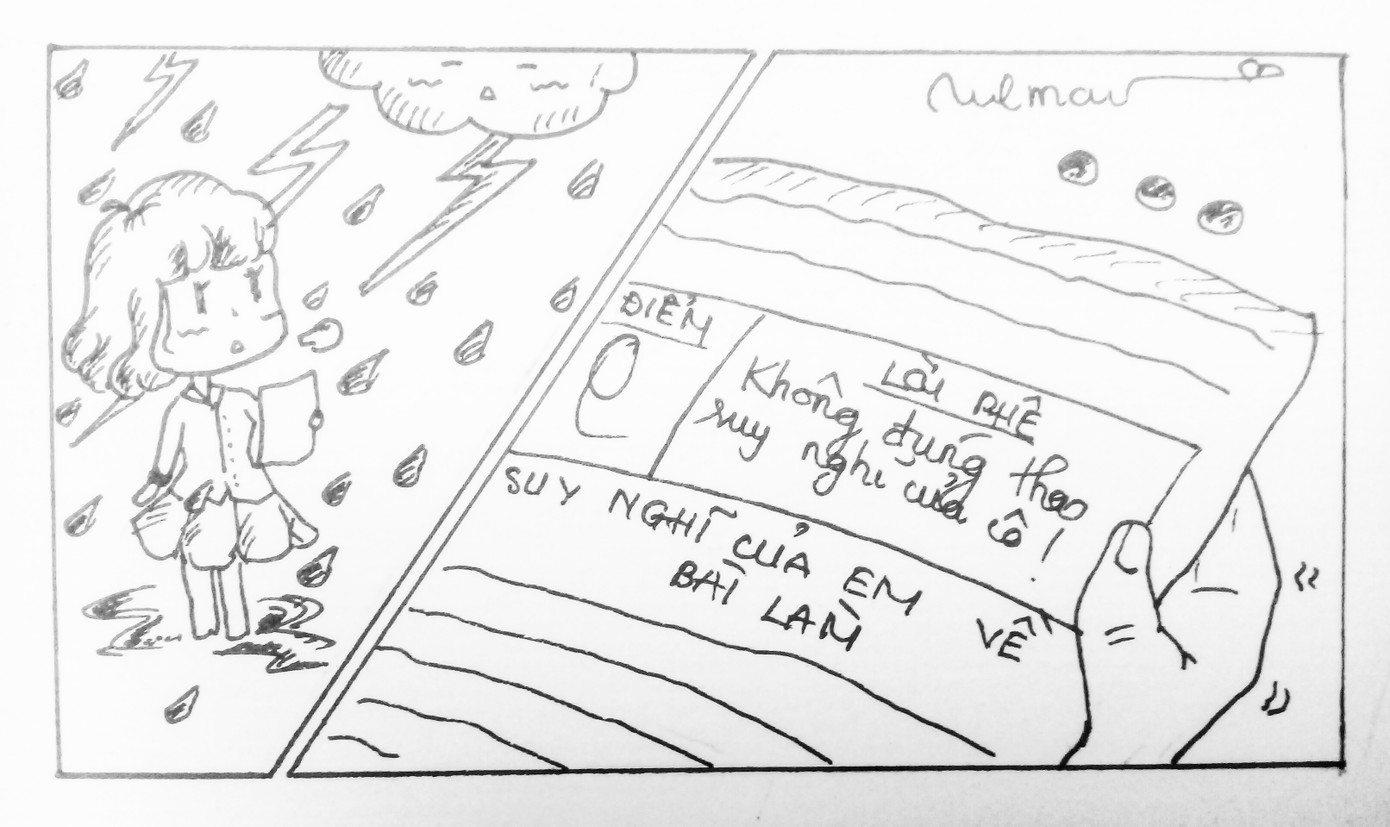 ĐIỂM
LỜI PHÊ
Không đúng theo
suy nghĩ của cô !
SUY NGHĨ CỦA EM VỀ
BÀI LÀM